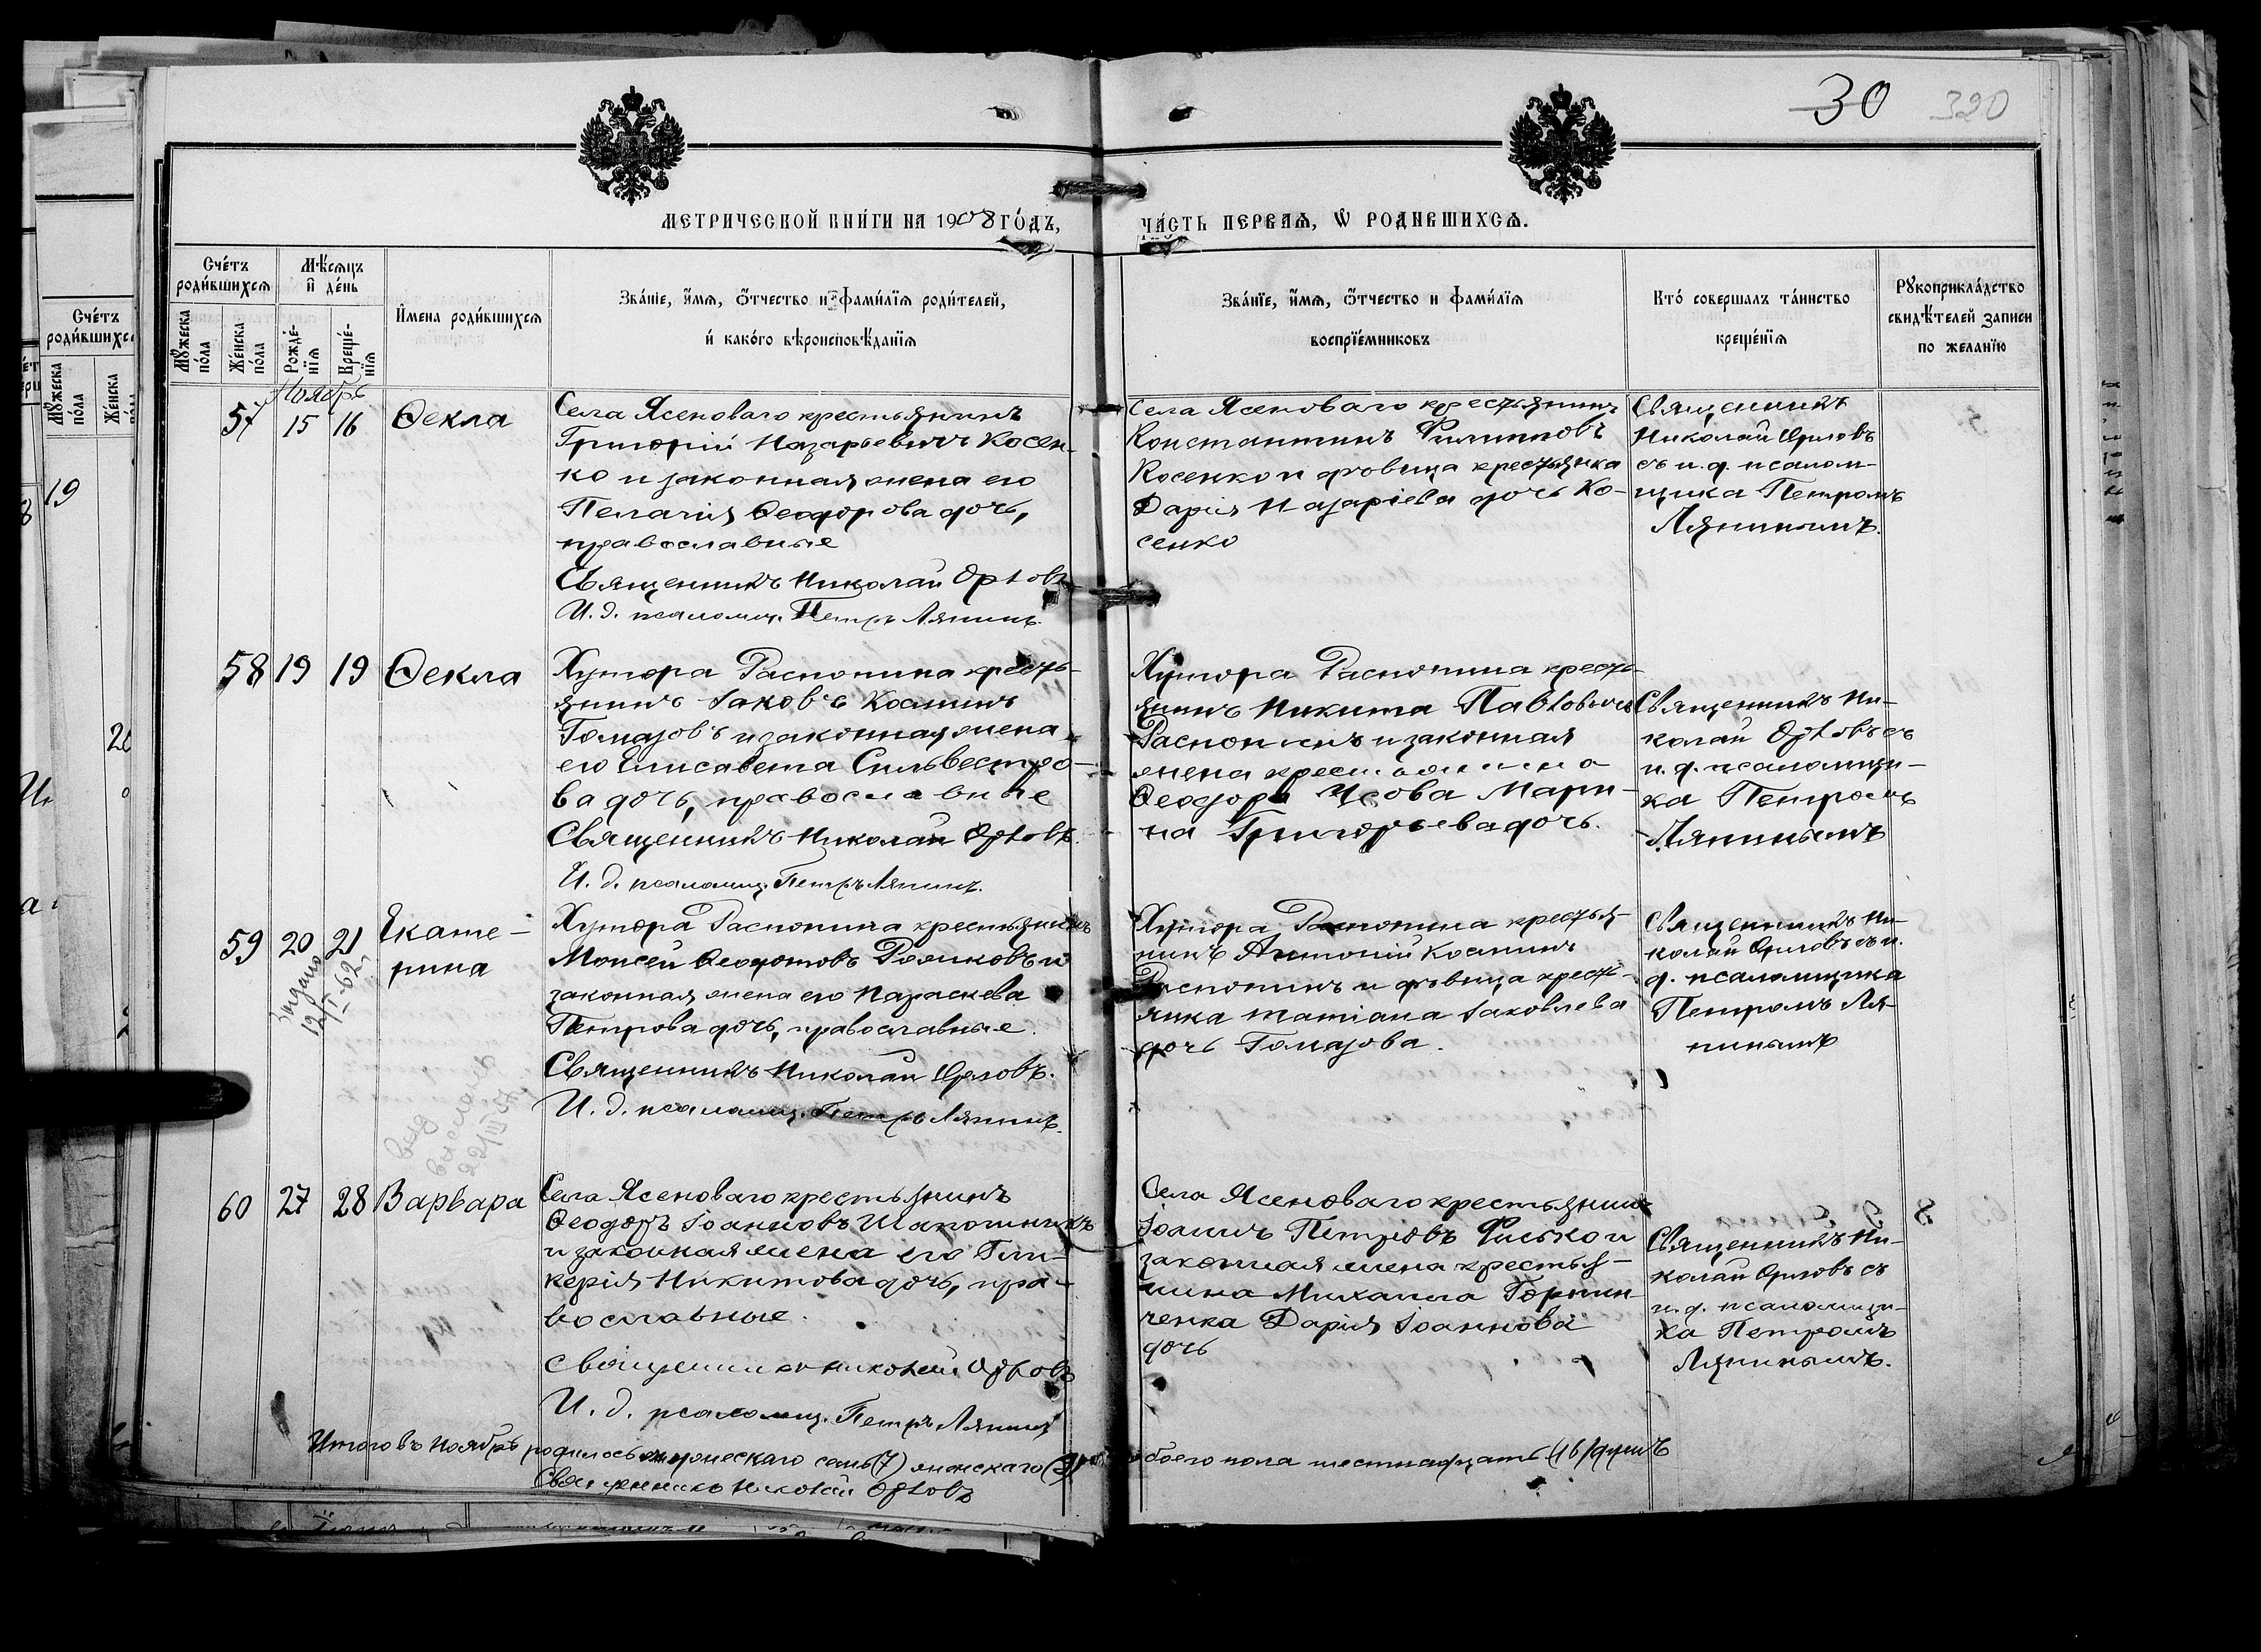 30 320
МЕТРИЧЕСКОЙ КНИ́ГИ НА 1908 ГО́ДЪ,
ЧА́СТЬ ПЕРВАѦ, Ѡ РОДИВШИХСѦ.
Сче́тъ роди́вшихсѧ
Мѣ́сѧцъ и де́нь
Мꙋ́жеска по́ла
Же́нска по́ла
Рожде́-нїѧ
Креще́-нїѧ
И́мена роди́вшихсѧ
Зва́нїе, и́мѧ, о́тчество и фами́лїѧ роди́телей,
и како́го вѣроисповѣ́данїѧ
Зва́нїе, и́мѧ, о́тчество и фами́лїѧ
воспрїе́мниковъ
Кто́ соверша́лъ та́инство
креще́нїѧ
Рꙋкоприкла́дство
свидѣ́телей записи
по жела́нїю
Ноябрь
57 15 16 Ѳекла
Села Ясеноваго крестьянинъ
Григорій Назарьевичъ Косен-
ко и законная жена его
Пелагія Ѳеодорова дочь,
православные
Священникъ Николай Орловъ
И. д. псаломщ. Петръ Ляпинъ.
Села Ясеноваго крестьянинъ
Константинъ Филипповъ
Косенко и дѣвица крестьянка
Дарія Назаріева дочь Ко-
сенко
Священникъ
Николай Орловъ
съ и. д. псалом-
щика Петромъ
Ляпинымъ.
58 19 19 Ѳекла
Хутора Распопина кресть-
янинъ Іаковъ Косминъ
Гомазовъ и законная жена
его Елисавета Сильвестро-
ва дочь, православные
Священникъ Николай Орловъ.
И. д. псаломщ. Петръ Ляпинъ.
Хутора Распопина кресть-
янинъ Никита Павловичъ
Распопинъ и законная
жена крестьянина
Ѳеодора Усова Мари-
на Григорьева дочь.
Священникъ Ни-
колай Орловъ съ
и. д. псаломщи-
ка Петромъ
Ляпинымъ
59 20 21 Екате-
рина
12/I-62
Хутора Распопина крестьянинъ
Моисей Ѳеодотовъ и
законная жена его Параскева
Петрова дочь, православные.
Священникъ Николай Орловъ.
И. д. псаломщ. Петръ Ляпинъ.
Хутора Распопина крестья-
нинъ Антоній Косминъ
Распопинъ и дѣвица кресть-
янка Татіана Іаковлева
дочь Гомазова.
Священникъ Ни-
колай Орловъ съ и.
д. псаломщика
Петромъ Ля-
пинымъ
60 27 28 Варвара
Села Ясеноваго крестьянинъ
Ѳеодоръ Іоанновъ
и законная жена его Гли-
керія Никитова дочь, пра-
вославные.
Священникъ Николай Орловъ
И. д. псаломщ. Петръ Ляпинъ
Села Ясеноваго крестьянинъ
Іоаннъ Петровъ Фисько и
законная жена крестья-
нина Михаила Горпин-
ченка Дарія Іоаннова
дочь
Священникъ Ни-
колай Орловъ съ
и. д. псаломщи-
ка Петромъ
Ляпинымъ.
Итого въ Ноябрѣ родилось мужескаго семь (7) женскаго (9) обоего пола шестнадцать (16) душъ
Священникъ Николай Орловъ